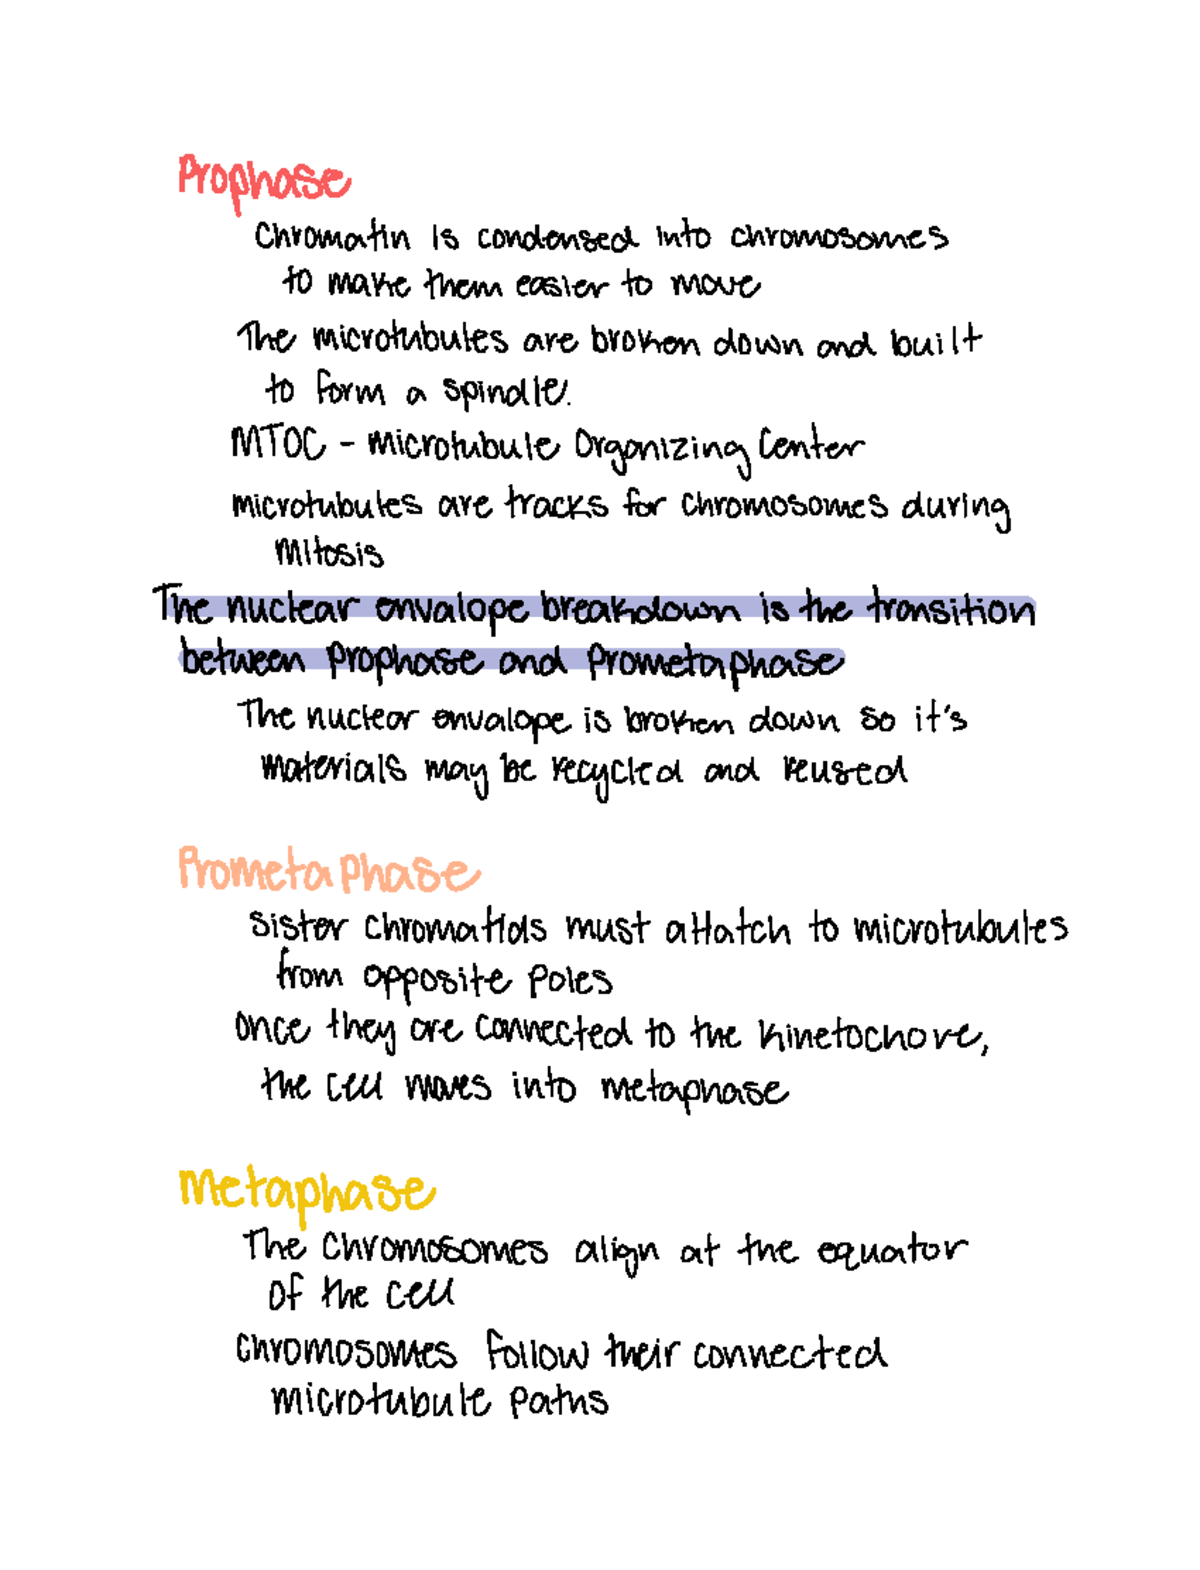 Prophase
Chromatin is condensed into chromosomes
to make them easier to move
The microtubules are broken down and built
to form a spindle.
MTOC - Microtubule Organizing Center
microtubules are tracks for chromosomes during
mitosis
The nuclear envalope breakdown is the transition
between Prophase and Prometaphase
The nuclear envalope is broken down so it's
materials may be recycled and reused
Prometaphase
Sister chromatids must attatch to microtubules
from opposite poles
once they are connected to the kinetochore,
the cell moves into metaphase
Metaphase
The Chromosomes align at the equator
of the cell
Chromosomes follow their connected
microtubule paths